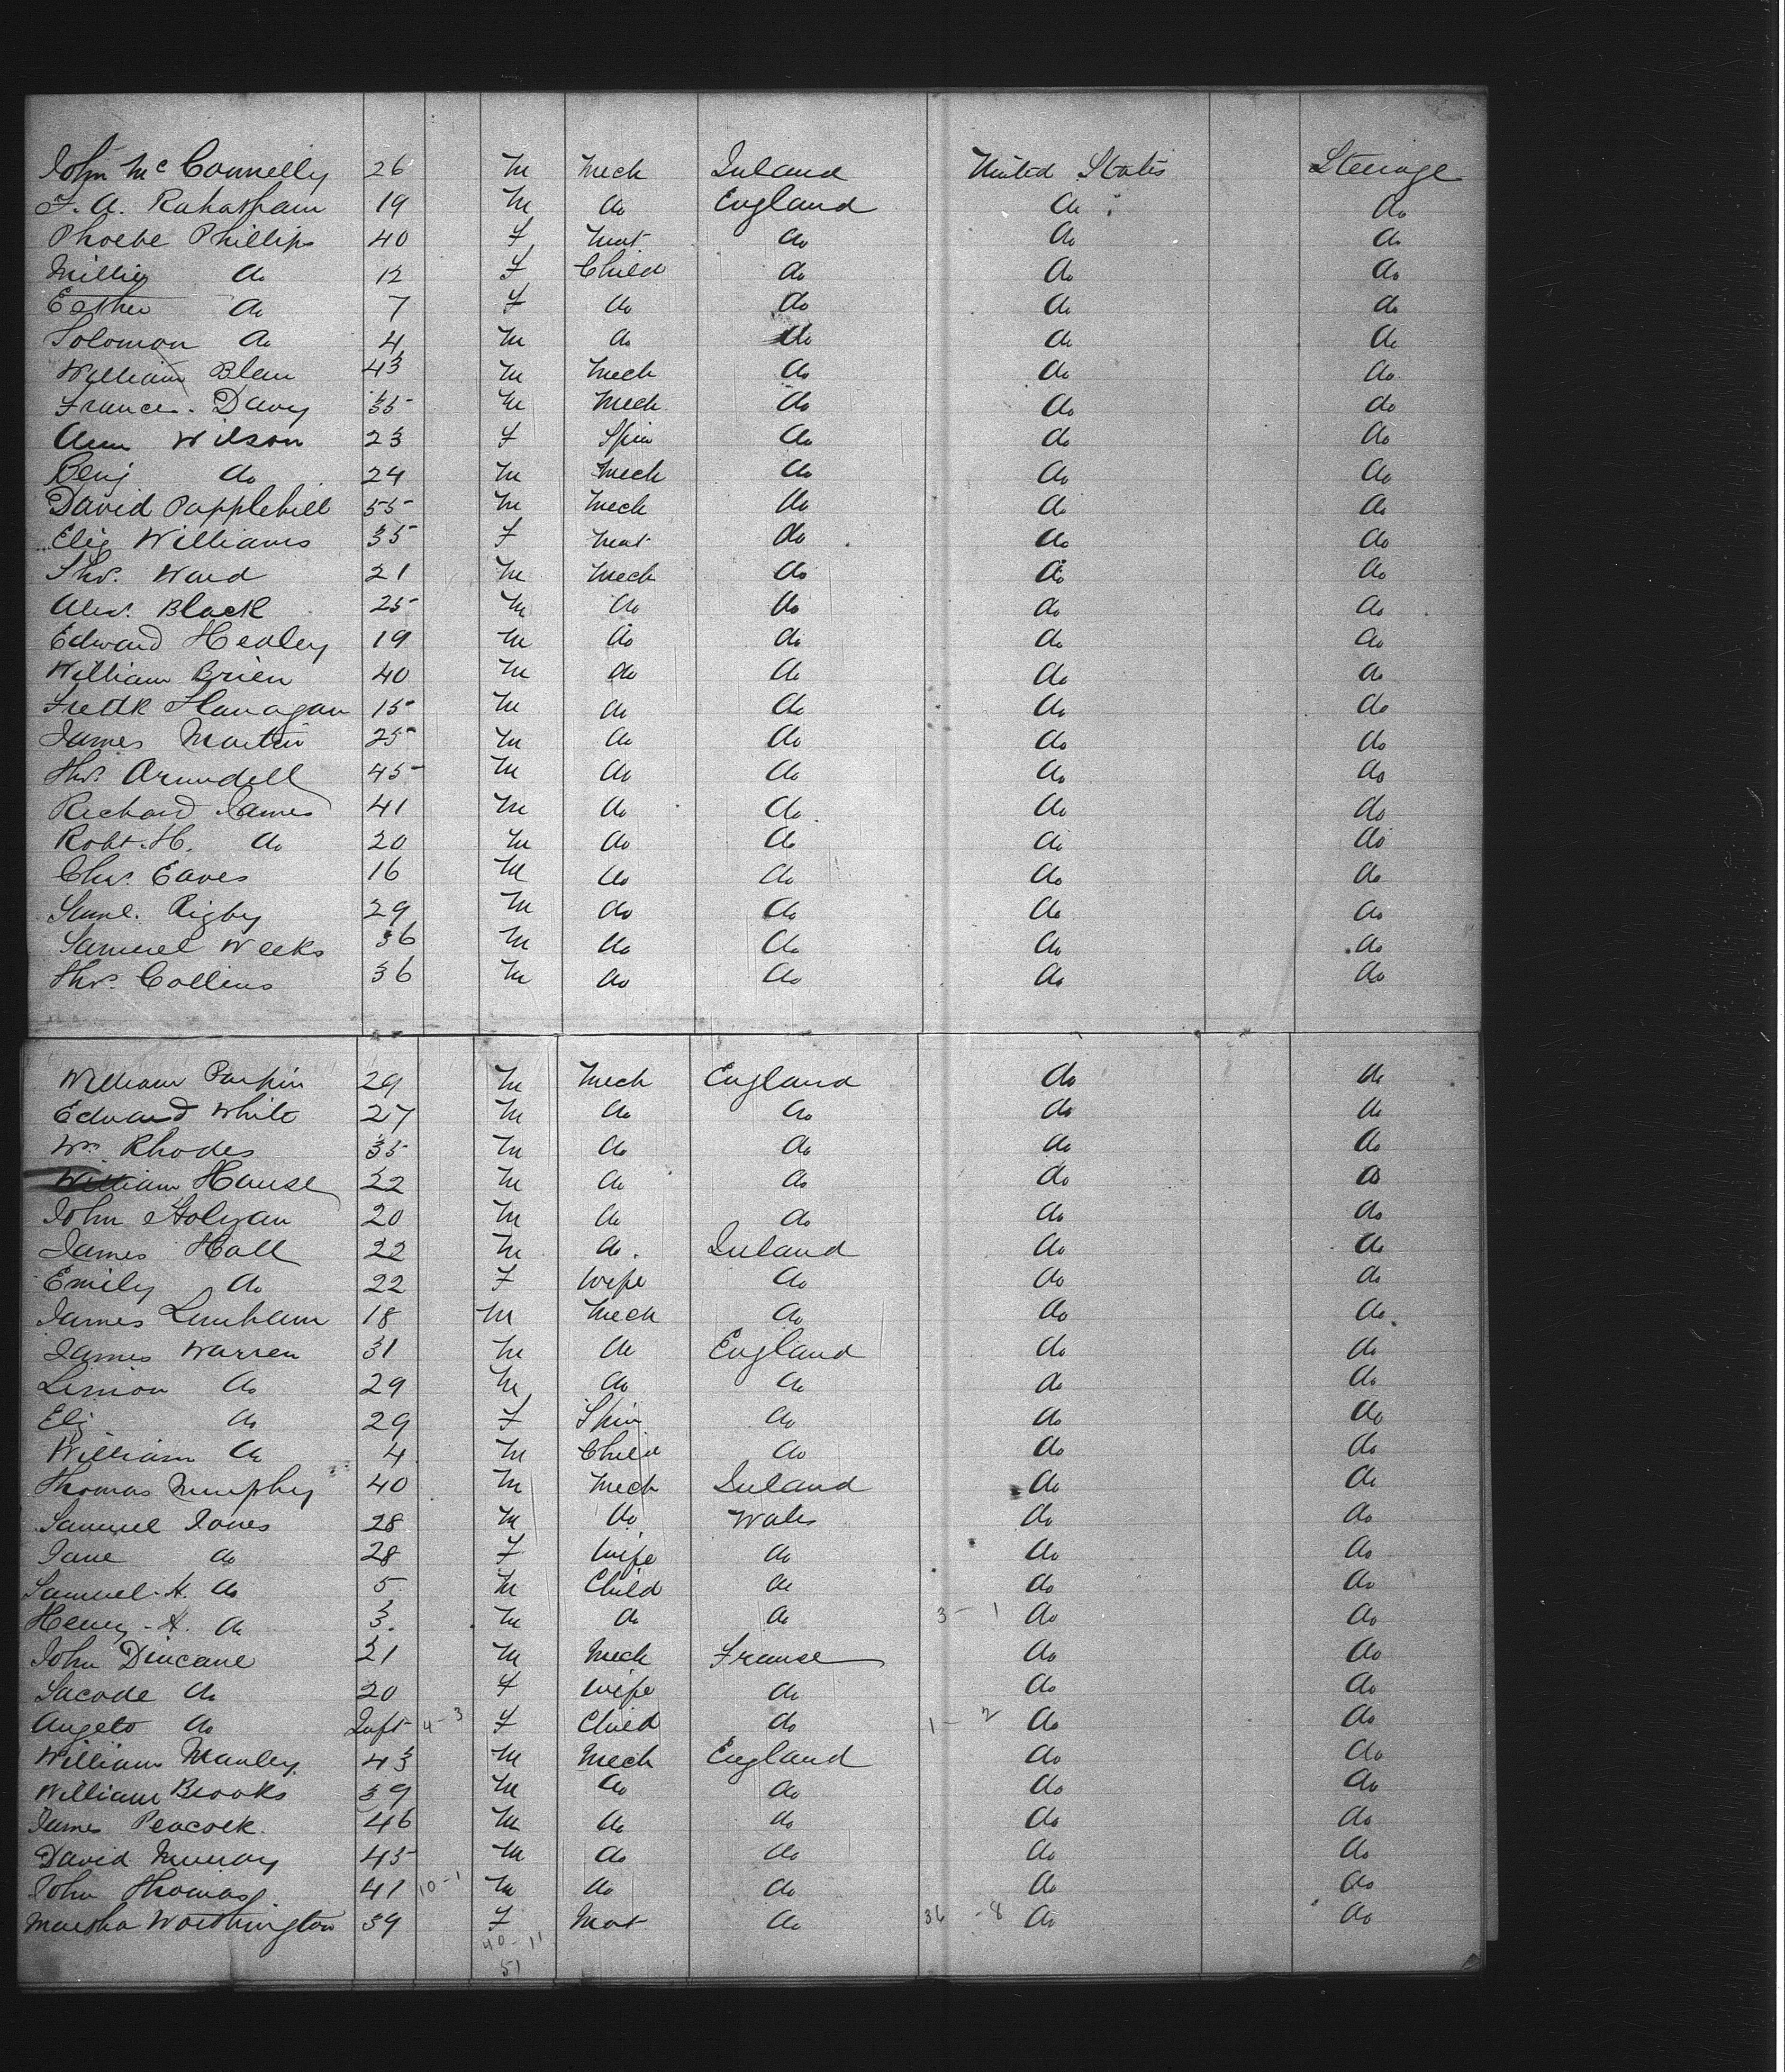 John McConnelly 26 M Mech Ireland United States Steerage
F. A. 19 M do England do do
Phoebe Phillips 40 F Mat do do do
Millie do 12 F Child do do do
Esther do 7 F do do do do
Solomon do 4 M do do do do
William Blem 43 M Mech do do do
Frances. Davy 35 M Mech do do do
Ann Wilson 23 F Spin do do do
Benj do 24 M Mech do do do
David Popplehill 55 M Mech do do do
Eliz Williams 35 F Mat do do do
Thos. Ward 21 M Mech do do do
Alex. Black 25 M do do do do
Edward Healey 19 M do do do do
William Brien 40 M do do do do
Fredk Flanagan 15 M do do do do
James Martin 25 M do do do do
Thos. Arundell 45 M do do do do
Richard James 41 M do do do do
Robt. H. do 20 M do do do do
Chas. Eaves 16 M do do do do
Saml. Rigby 29 M do do do do
Samuel Weeks 36 M do do do do
Thos. Collins 36 M do do do do
William Parkin 29 M Mech England do do
Edward White 27 M do do do do
Wm. Rhodes 35 M do do do do
William Hause 22 M do do do do
John Holyan 20 M do do do do
James Hall 22 M do. Ireland do do
Emily do 22 F Wife do do do
James Lenham 18 M Mech do do do
James Warren 31 M do England do do
Simon do 29 M do do do do
Eliz do 29 F Spin do do do
William do 4 M Child do do do
Thomas Murphy 40 M Mech Ireland do do
Samuel Jones 28 M do Wales do do
Jane do 28 F Wife do do do
Samuel. H. do 5 M Child do do do
Henry - H. do 3. M do do 3 - 1 do do
John Dincane 21 M Mech Franse do do
Sacode do 20 F Wife do do do
Angeto do Inft 4 - 3 F Child do 1 - 2 do do
William Manley 43 M Mech England do do
William Brooks 39 M do do do do
James Peacock. 46 M do do do do
David Murray 45 M do do do do
John Thomas. 41 10 - 1 M do do do do
Martha Worthington 39 F Mat do 36 - 8 do do
40 - 11
51